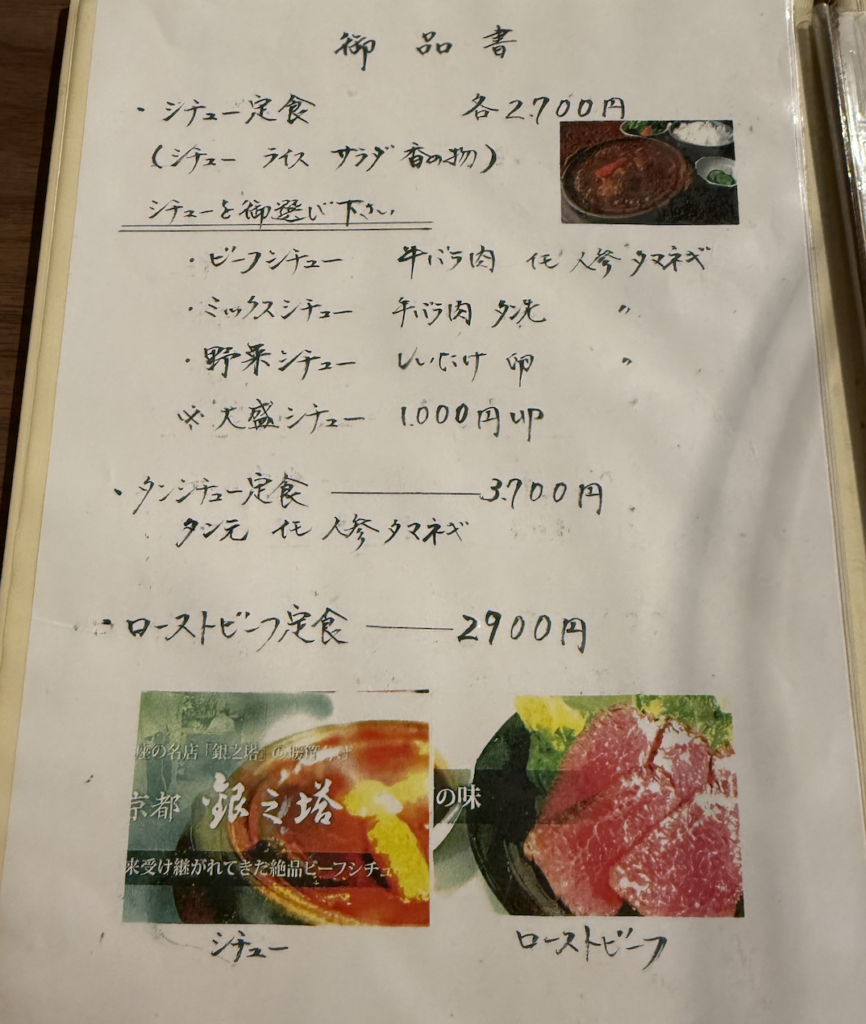 御品書
・シチュー定食 各2.700円
(シチュー ライス サラダ 香の物)
シチューを御選び下さい
・ビーフシチュー 牛バラ肉 イモ 人参 タマネギ
・ミックスシチュー 牛バラ肉 タン先 〃
・野菜シチュー しいたけ 卵 〃
※大盛シチュー 1.000円UP
・タンシチュー定食 ―――― 3.700円
タン元 イモ 人参 タマネギ
・ローストビーフ定食 ――― 2900円
座の名店「銀之塔」の
京都 銀之塔 の味
来受け継がれてきた絶品ビーフシチュ
シチュー
ローストビーフ